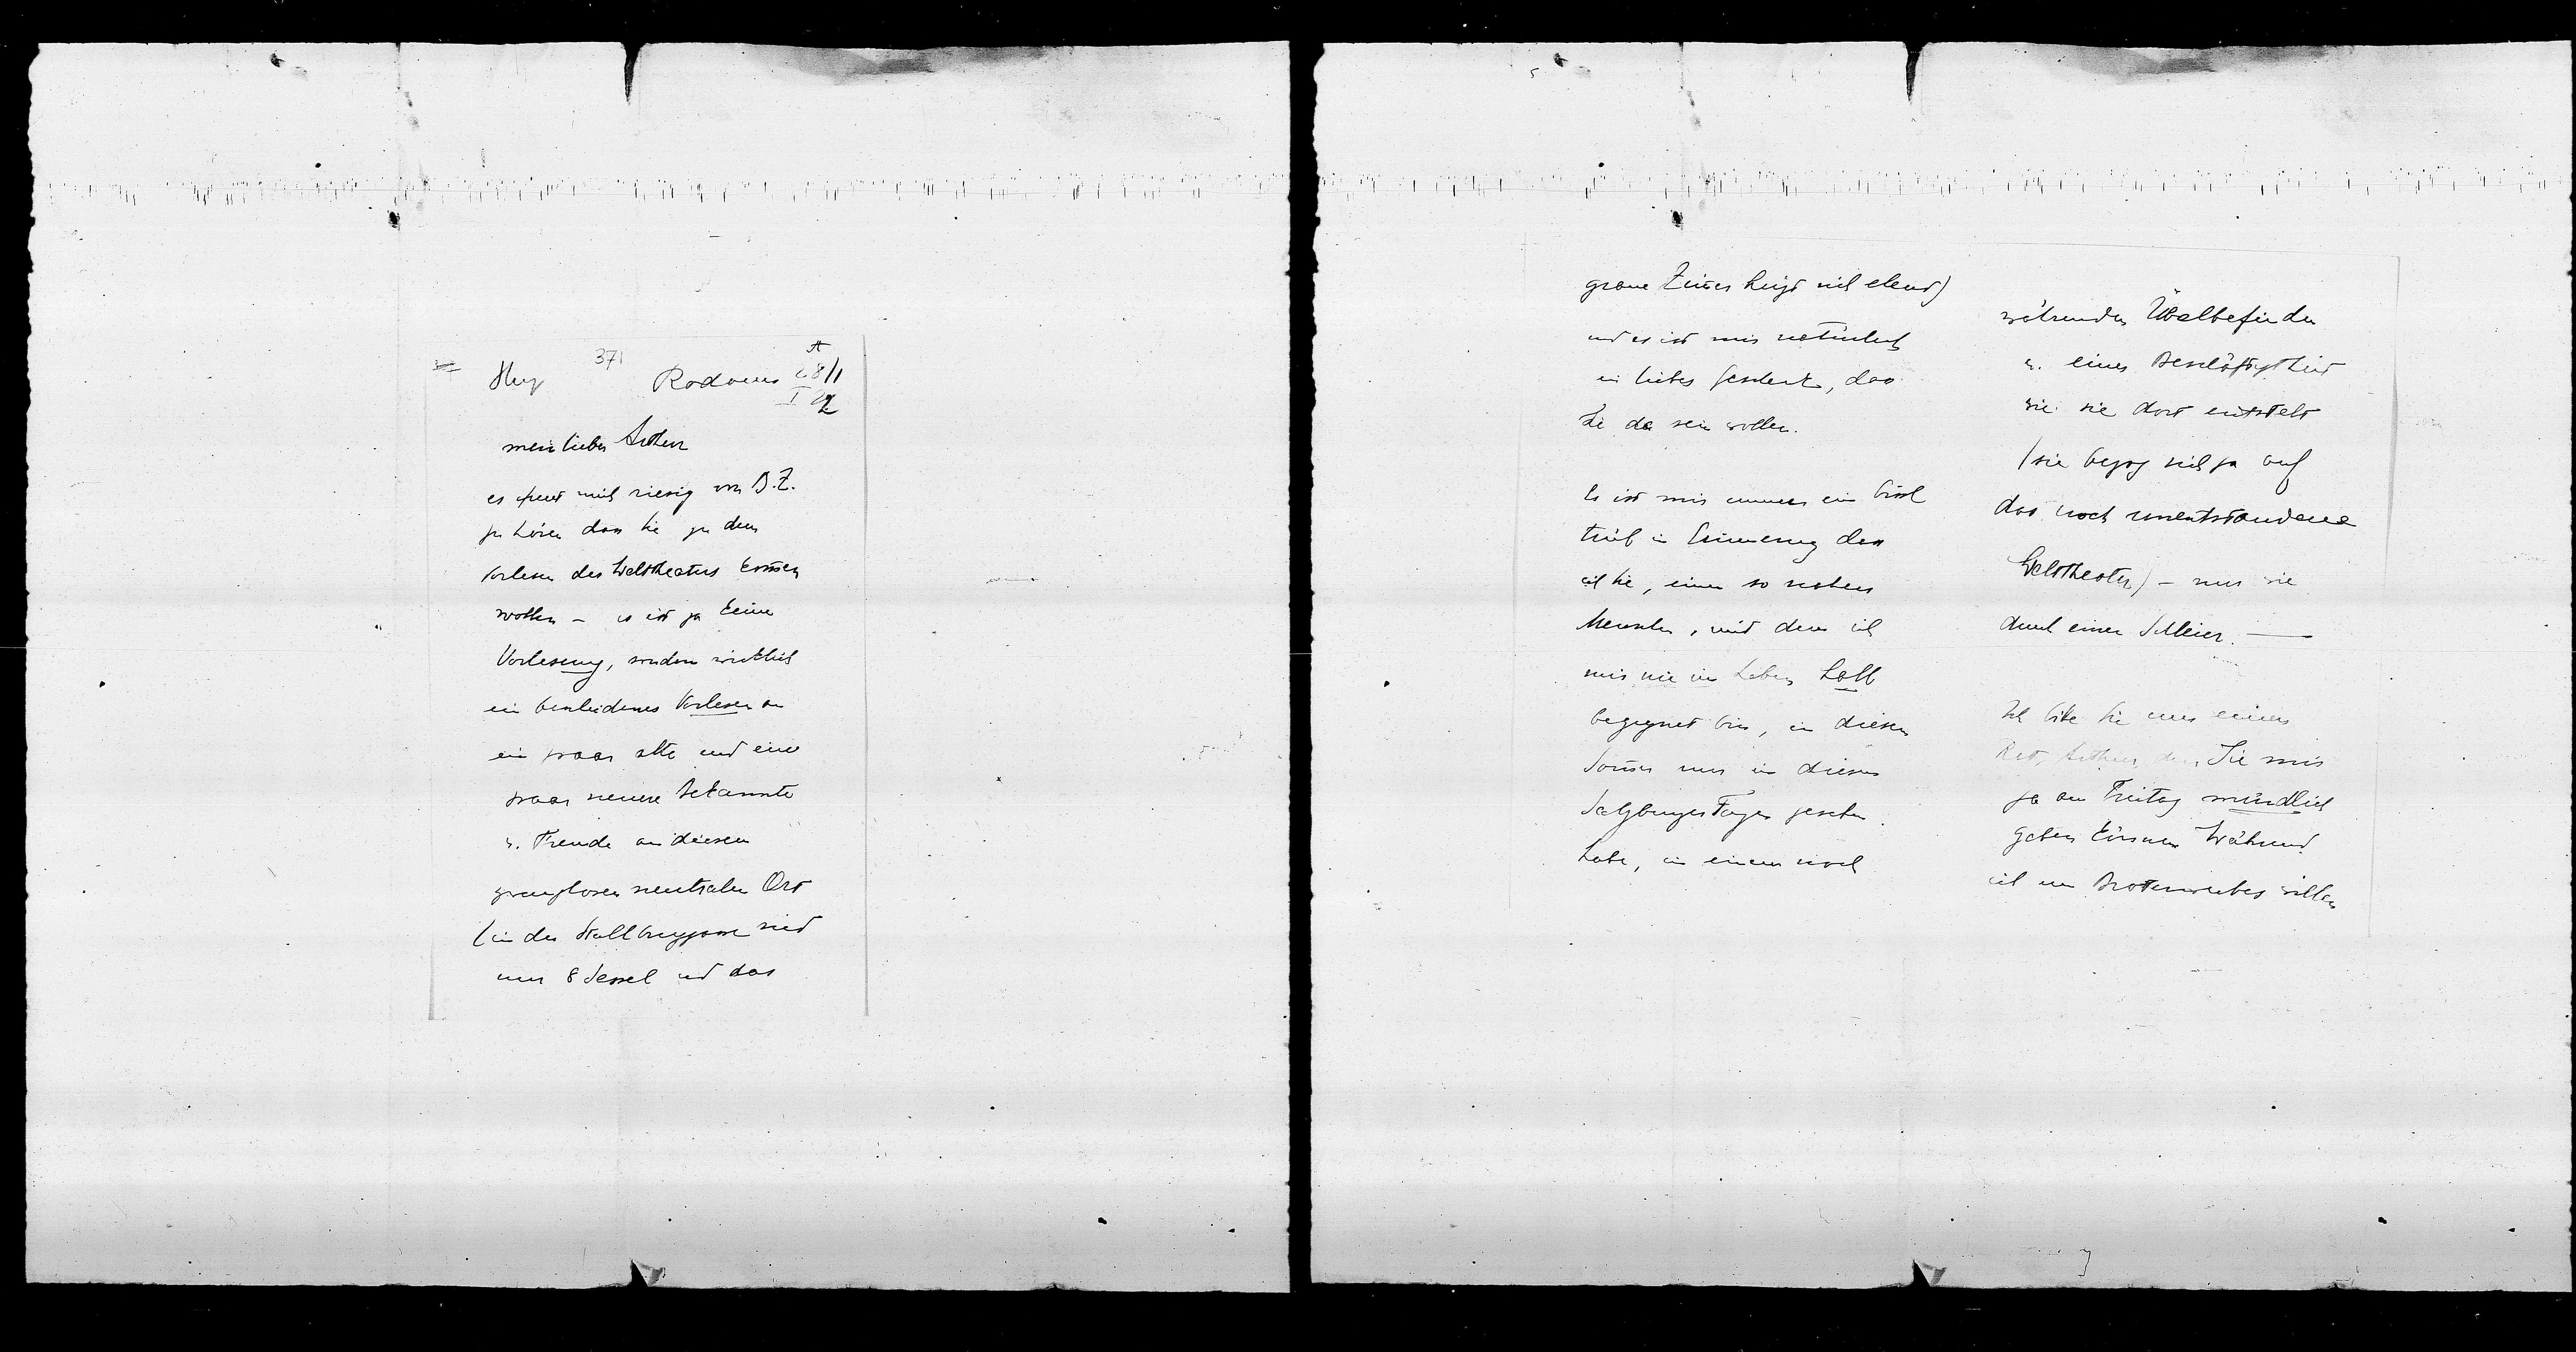 371
Hugo Rodaun 28/1
I 22
mein lieber Arthur
es freut mich riesig von B. Z.
zu hören dass Sie zu dem
Vorlesen des Welttheaters kommen
wollen – es ist ja keine
Vorlesung, sondern wirklich
ein bescheidenes Vorlesen an
ein paar alte und ein
paar neuere Bekannte
u. Freunde an diesem
zwanglosen neutralen Ort
(in der Stallburggasse sind
nur 8 Sessel und das
graue Zimmer heizt sich elend)
und es ist mir natürlich
ein liebes Geschenk, dass
Sie da sein wollen.
Es ist mir immer ein bissl
trüb in Erinnerung dass
ich Sie, einen so nahen
Menschen, mit dem ich
mir nie im Leben halb
begegnet bin, in diesem
Sommer nur in diesen
Salzburger Tagen gesehen
habe, in einem noch
währenden Übelbefinden
u. einer Beschäftigtheit
wie sie dort entsteht
(sie bezog sich ja auf
das noch unentstandene
Welttheater) – nur wie
durch einen Schleier. —
Ich bitte Sie um einen
Rat, Arthur, den Sie mir
ja am Freitag mündlich
geben können. Während
ich um Broterwerbes willen